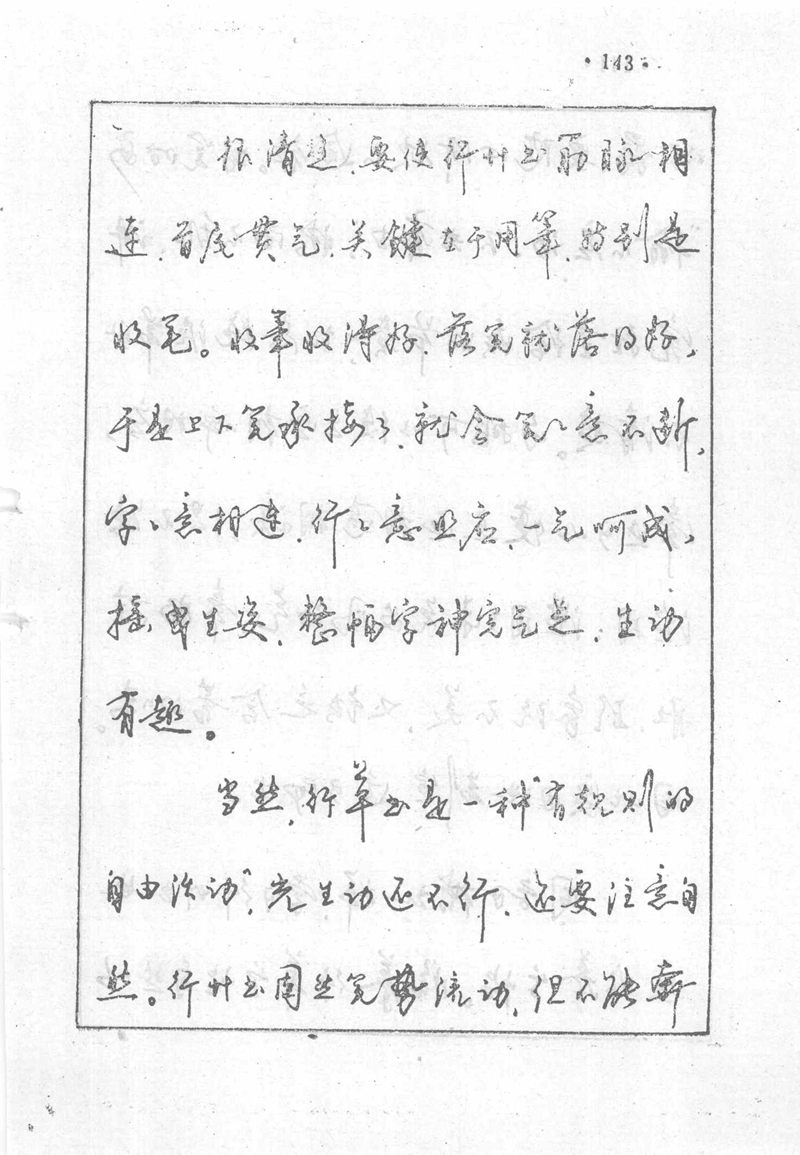 ·143·
很清楚，要使行草书筋脉相
连，首尾贯气，关键在于用笔，特别是
收笔。收笔收得好，落笔就落得好，
于是上下笔承接了，就会笔笔意不断，
字字意相连，行行意照应，一气呵成，
摇曳生姿，整幅字神完气足，生动
有趣。
当然，行草书是一种“有规则的
自由活动”，光生动还不行，还要注意自
然。行草书固然笔势流动，但不能